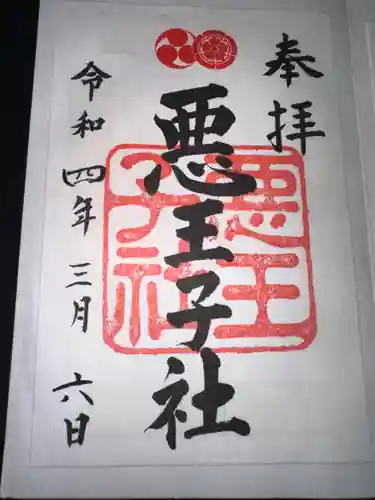 奉拝
悪王子社
悪王
子社
令和四年三月六日